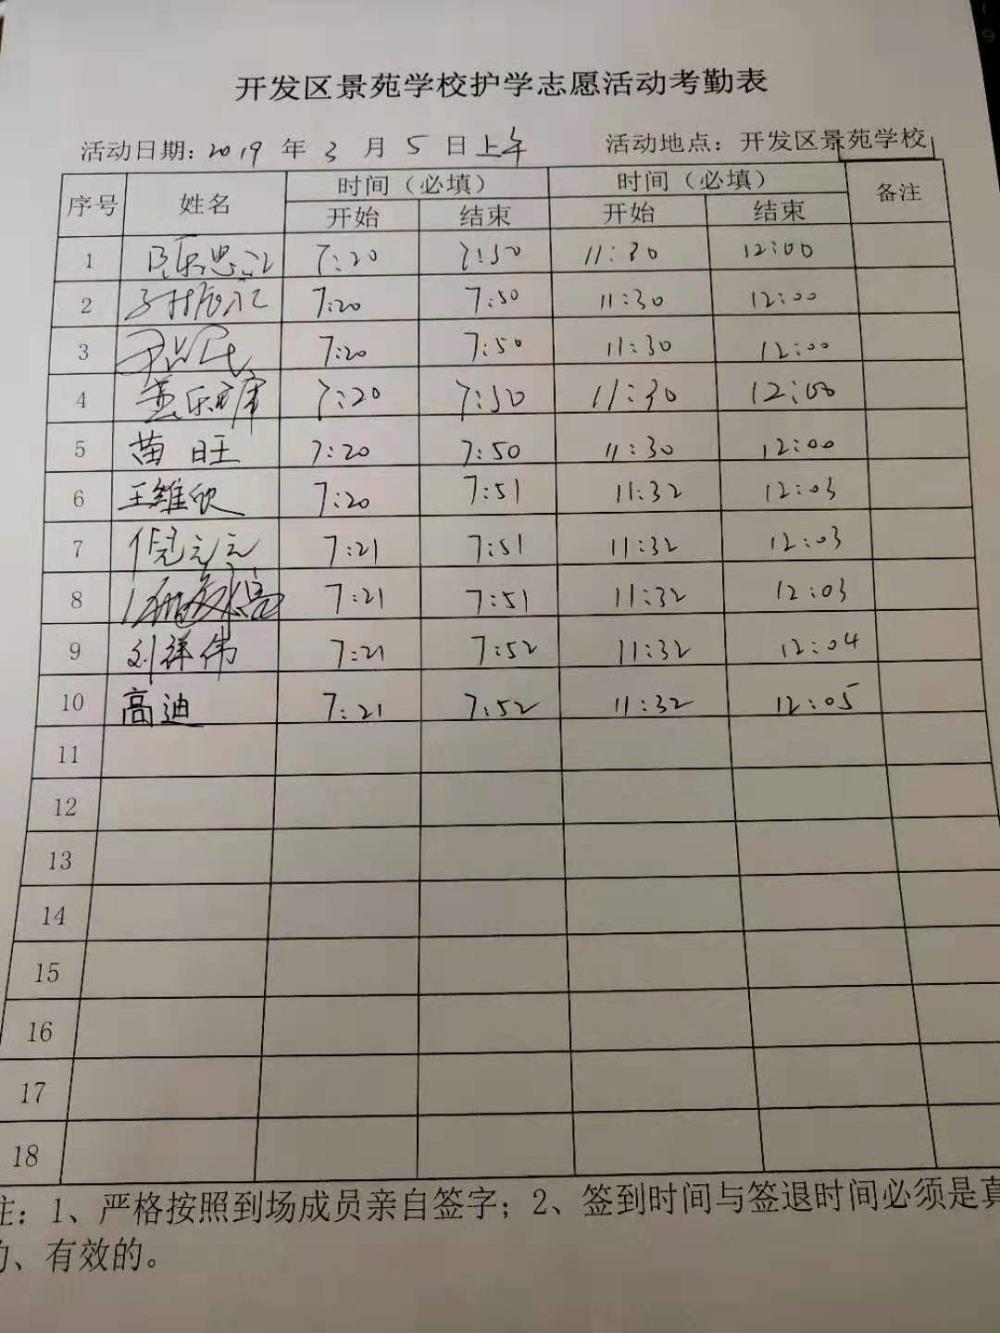 开发区景苑学校护学志愿活动考勤表
活动日期: 2019 年 3 月 5 日上午 活动地点: 开发区景苑学校
序号 姓名 时间（必填） 时间（必填） 备注
开始 结束 开始 结束
1 7:20 7:50 11:30 12:00
2 7:20 7:50 11:30 12:00
3 7:20 7:50 11:30 12:00
4 7:20 7:50 11:30 12:00
5 苗旺 7:20 7:50 11:30 12:00
6 王维欣 7:20 7:51 11:32 12:03
7 倪元元 7:21 7:51 11:32 12:03
8 7:21 7:51 11:32 12:03
9 刘祥伟 7:21 7:52 11:32 12:04
10 高迪 7:21 7:52 11:32 12:05
11
12
13
14
15
16
17
18
注: 1、严格按照到场成员亲自签字; 2、签到时间与签退时间必须是真
的、有效的。